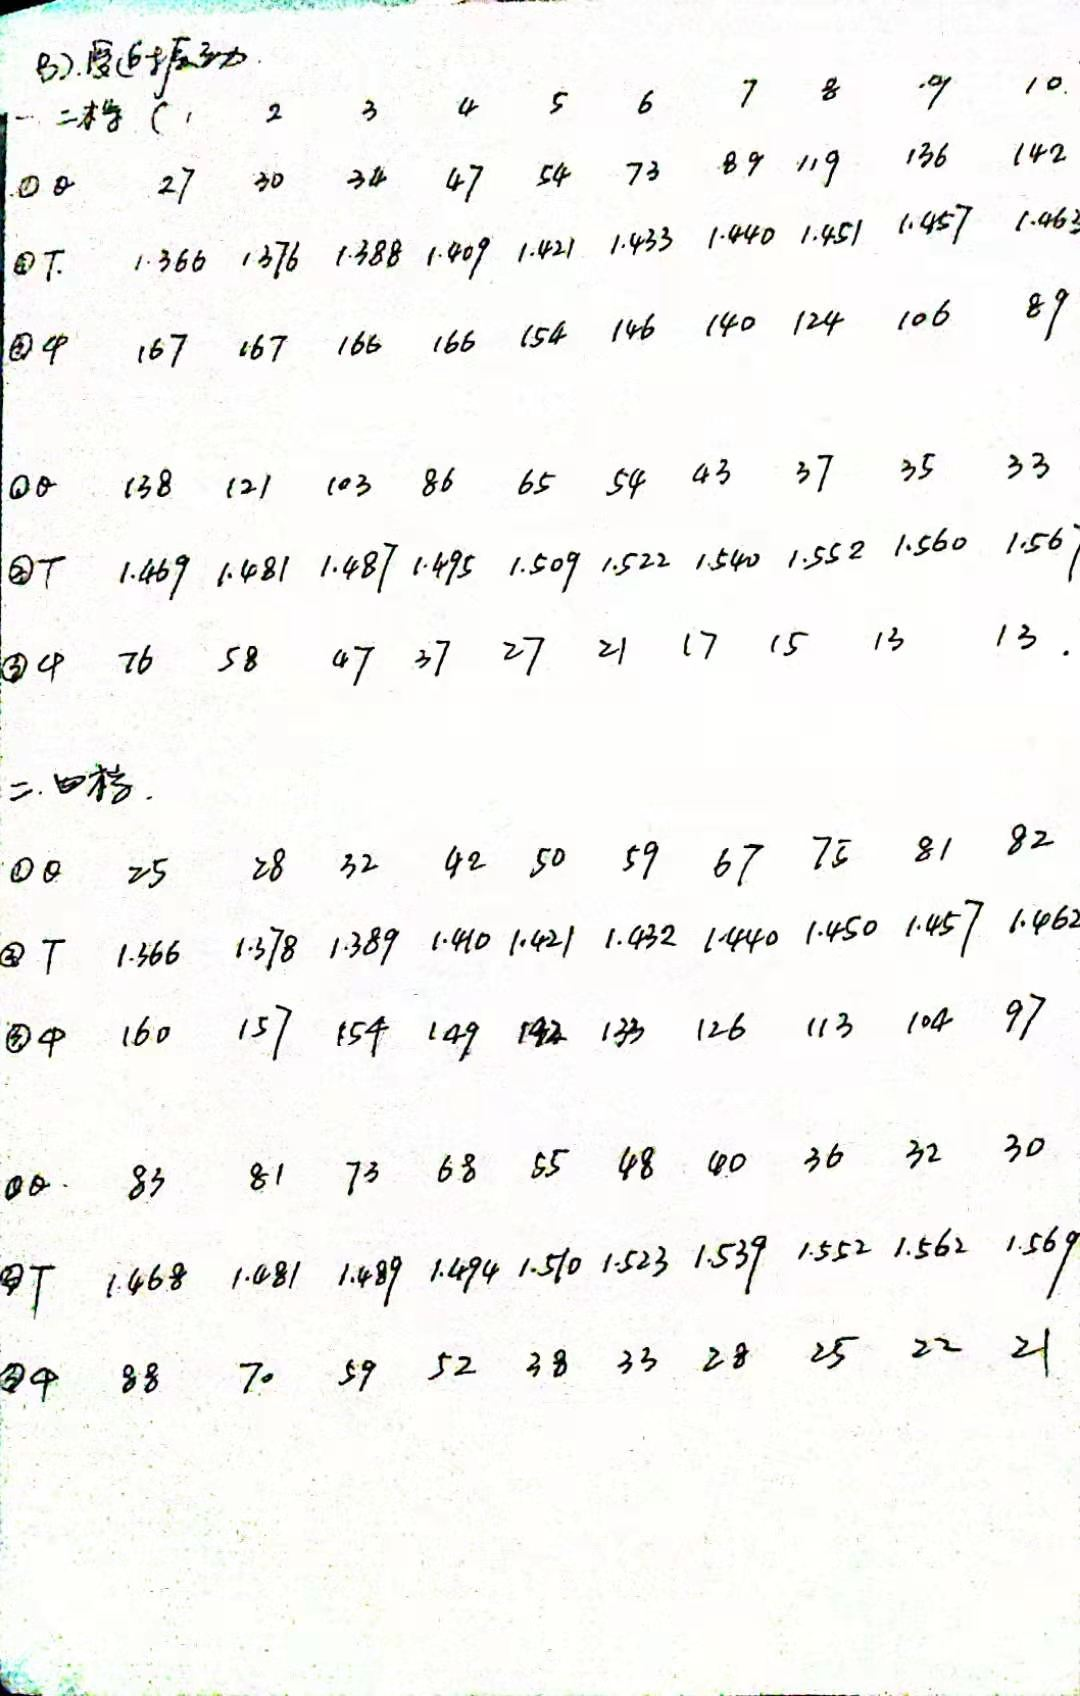 B).受迫振动.
一. 二档 ( 1 2 3 4 5 6 7 8 9 10.
① θ 27 30 34 47 54 73 89 119 136 142
② T. 1.366 1.376 1.388 1.409 1.421 1.433 1.440 1.451 1.457 1.463
③ φ 167 167 166 166 154 146 140 124 106 89
① θ 138 121 103 86 65 54 43 37 35 33
② T 1.469 1.481 1.487 1.495 1.509 1.522 1.540 1.552 1.560 1.567
③ φ 76 58 47 37 27 21 17 15 13 13.
二. 四档.
① θ 25 28 32 42 50 59 67 75 81 82
② T 1.366 1.378 1.389 1.410 1.421 1.432 1.440 1.450 1.457 1.462
③ φ 160 157 154 149 142 133 126 113 104 97
① θ. 83 81 73 68 55 48 40 36 32 30
② T 1.468 1.481 1.489 1.494 1.510 1.523 1.539 1.552 1.562 1.569
③ φ 88 70 59 52 38 33 28 25 22 21